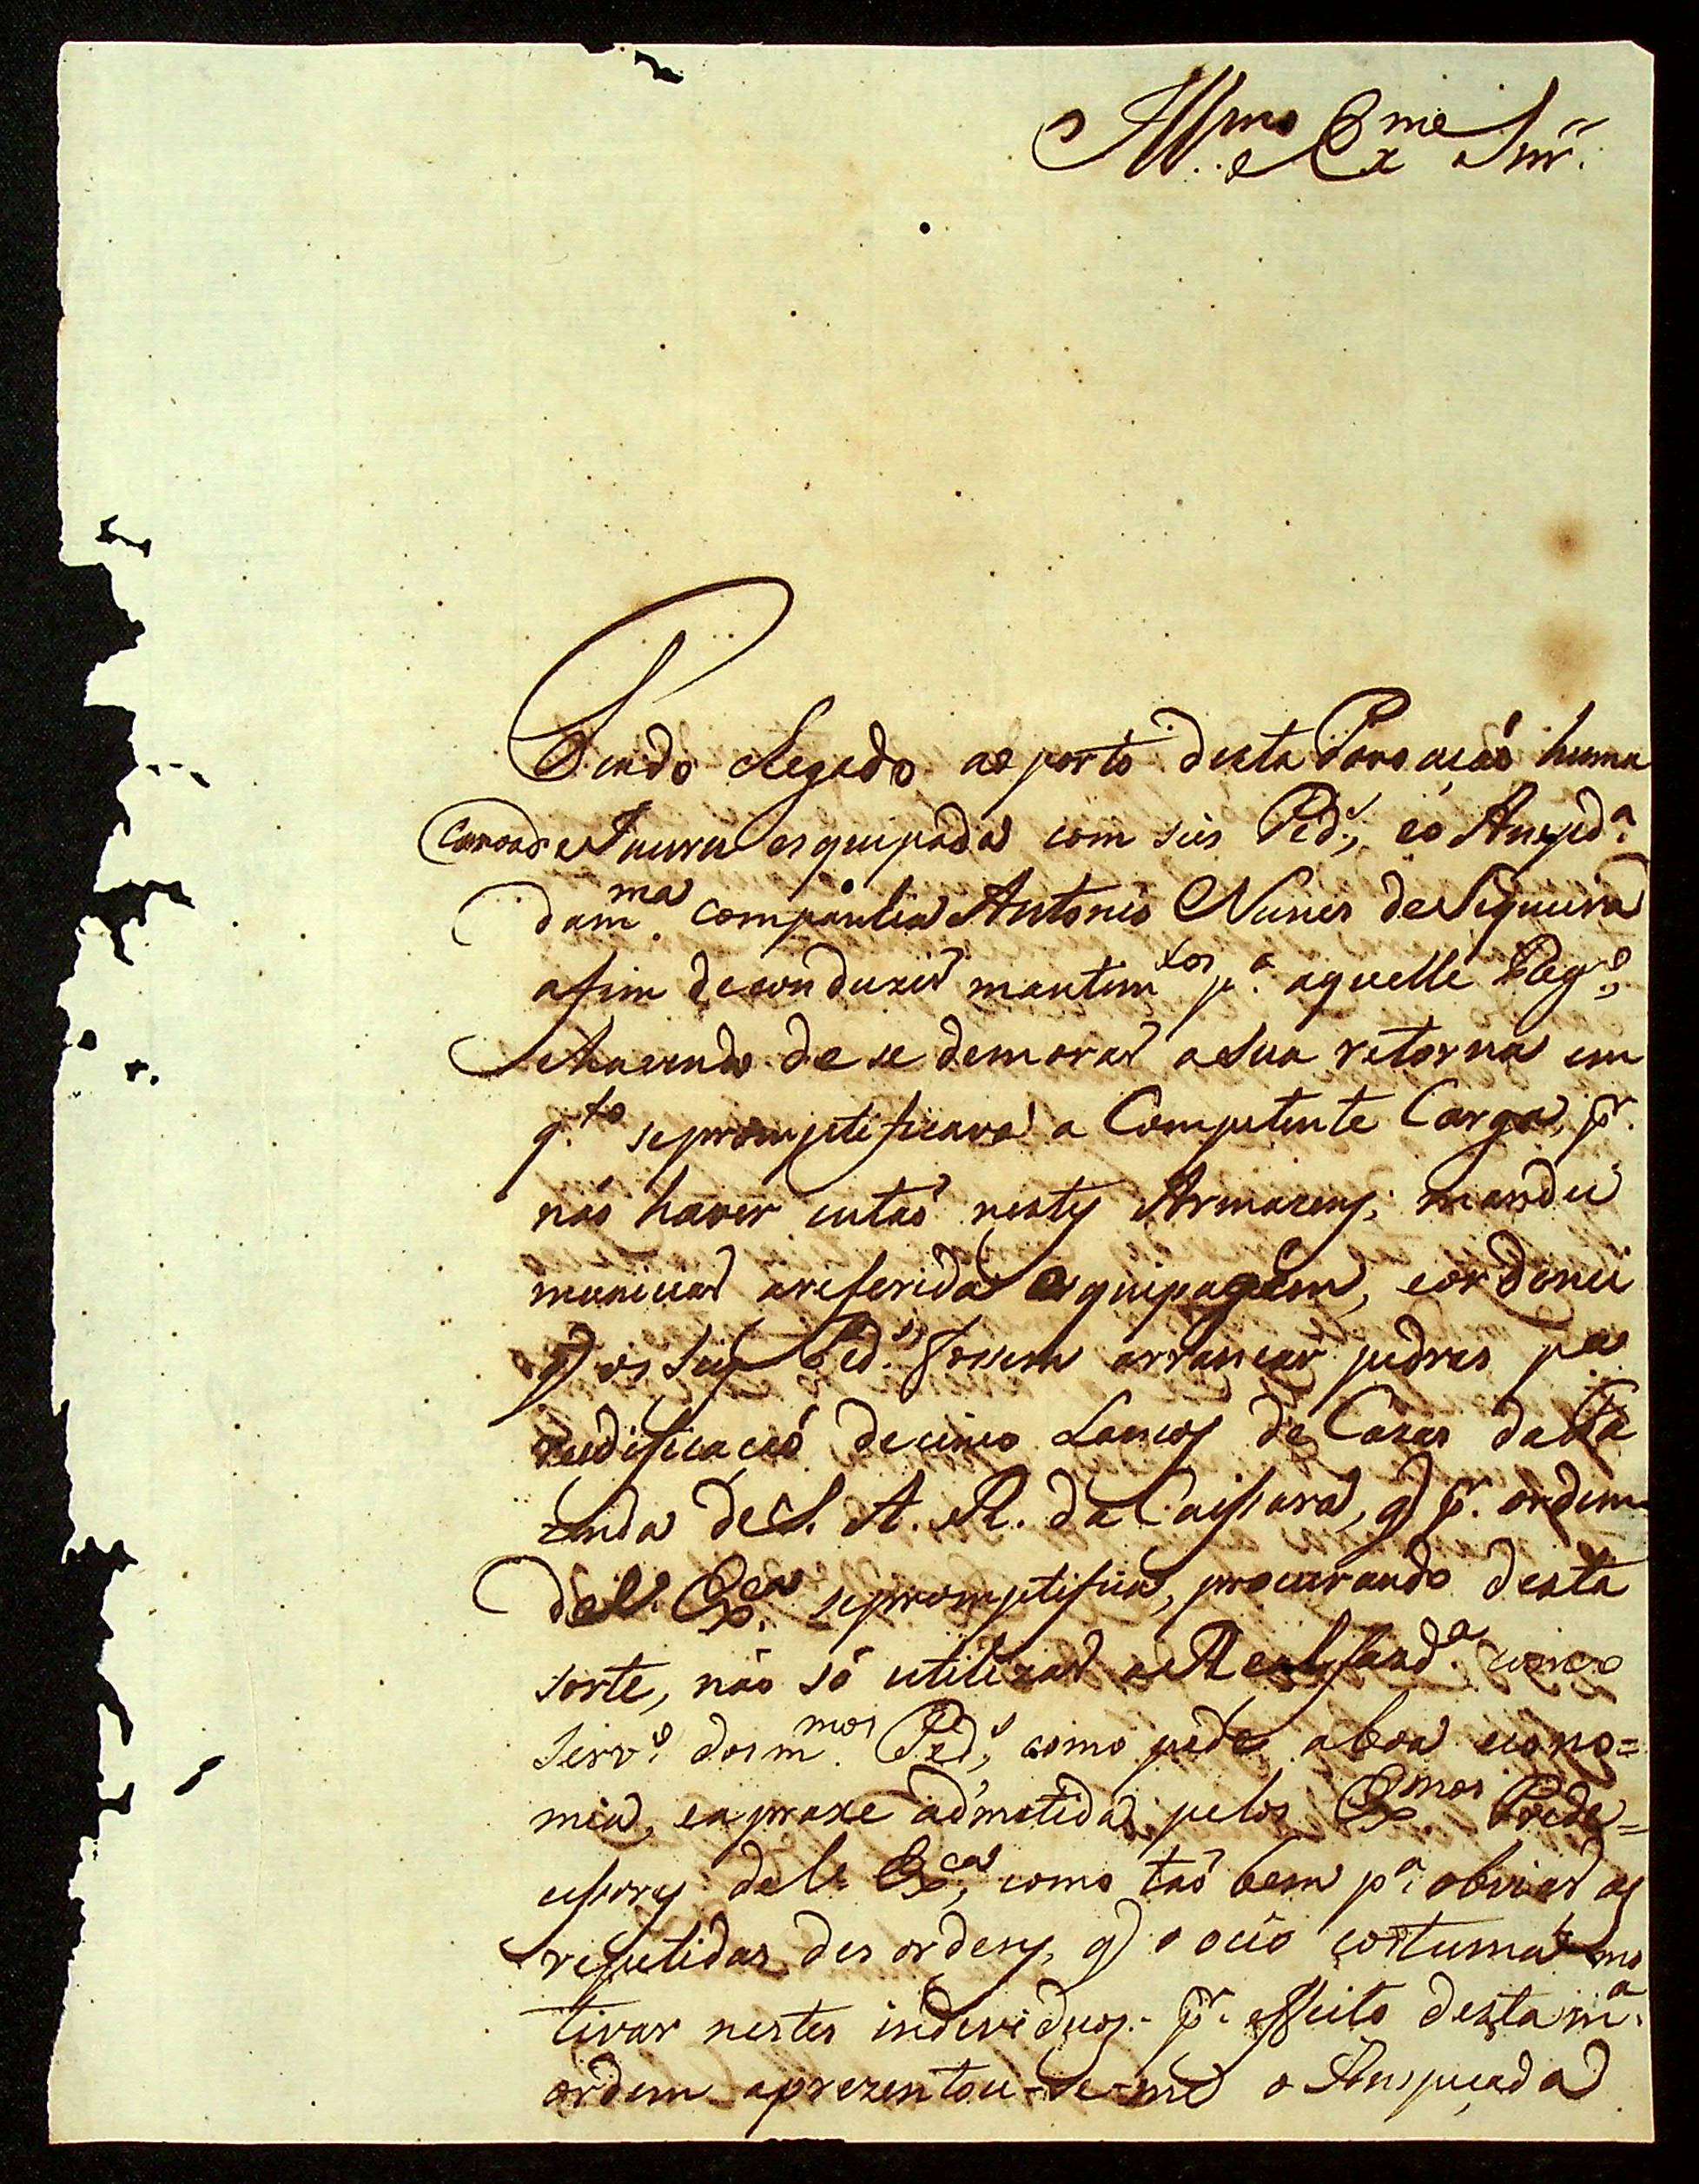 Illmo e Exmo Snr.
Sendo chegado ao porto desta Povoação huma
Canoa de Jaurú esquipada com seis Ped.s, e o Anspd.a
da m.ma companhia Antonio Nunes de Siqueira
afim de conduzir mantim.tos p.a aquelle Reg.o,
e havendo de se demorar a sua retorna em
q.to se promptificava a Competente Carga, p.r
não haver entaõ nestes Armazens; mandei
municiar a referida equipagem, e ordenei
q os seus Ped.s fossem arrancar pedras p.a
reedificação de cinco Lanços de Cazas da Fa
zenda de S. A. R. da Caissara, q p.r ordem
de V. Ex.ca se promptifica, procurando desta
sorte, não só utilizar a Real Fazd.a com o
serv.o dos m.mos Ped.s, como pede a boa econo=
mia, e a praxe admetida pelos Ex.mos Prede=
cessores de V. Ex.ca, como taõ bem p.a obviar as
repetidas desordens, q o ocio costuma mo
tivar nestes individuos. P.r effeito desta m.a
ordem aprezentou-se-me o Anspeçada